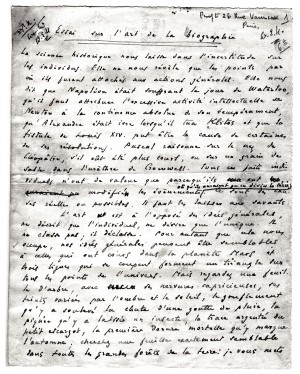 Essai sur l'art de la Biographie
La science historique nous laisse dans l'incertitude sur
les individus. Elle ne nous révèle que les points par
où ils furent attachés aux actions générales. Elle nous
dit que Napoléon était souffrant le jour de Waterloo,
qu'il faut attribuer l'excessive activité intellectuelle de
Newton à la continence absolue de son tempérament,
qu'Alexandre était ivre lorsqu'il tua Klitos et que la
fistule de Louis XIV put être la cause de certaines
de ses résolutions. Pascal raisonne sur le nez de
Cléopâtre, s'il eût été plus court, ou sur un grain de
sable dans l'urètre de Cromwell. Tous ces faits
individuels n'ont de valeur que parce qu'ils
ont modifié les événements
réelles ou possibles. Il faut les laisser aux savants.
L'art est à l'opposé des idées générales,
ne décrit que l'individuel, ne désire que l'unique. Il
ne classe pas; il déclasse. Pour autant que cela nous
occupe, nos idées générales peuvent être semblables
à celles qui ont cours dans la planète Mars et
trois lignes qui se coupent forment un triangle sur
tous les points de l'univers. Mais regardez une feuille
d'arbre, avec ses nervures capricieuses, ses
teintes variées par l'ombre et le soleil, le gonflement
qu'y a soulevé la chute d'une goutte de pluie, la
piqûre qu'y a laissée un insecte, la trace argentée du
petit escargot, la première dorure mortelle qu'y marque
l'automne; cherchez une feuille exactement semblable
dans toutes les grandes forêts de la terre: je vous mets